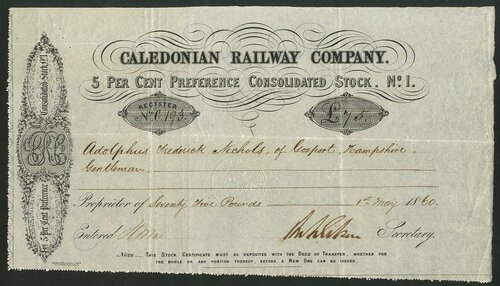 CALEDONIAN RAILWAY COMPANY.
5 PER CENT PREFERENCE CONSOLIDATED STOCK. No. 1.
REGISTER
No. C.193
£75.
Adolphus Frederick Nichols, of Gosport, Hampshire,
Gentleman
Proprietor of Seventy Five Pounds 1st May 1860.
Entered
Secretary.
Note ... THIS STOCK CERTIFICATE MUST BE DEPOSITED WITH THE DEED OF TRANSFER, WHETHER FOR
THE WHOLE OR ANY PORTION THEREOF, BEFORE A NEW ONE CAN BE ISSUED.
5 Per Cent Preference
CRC
Consolidated Stock No. 1